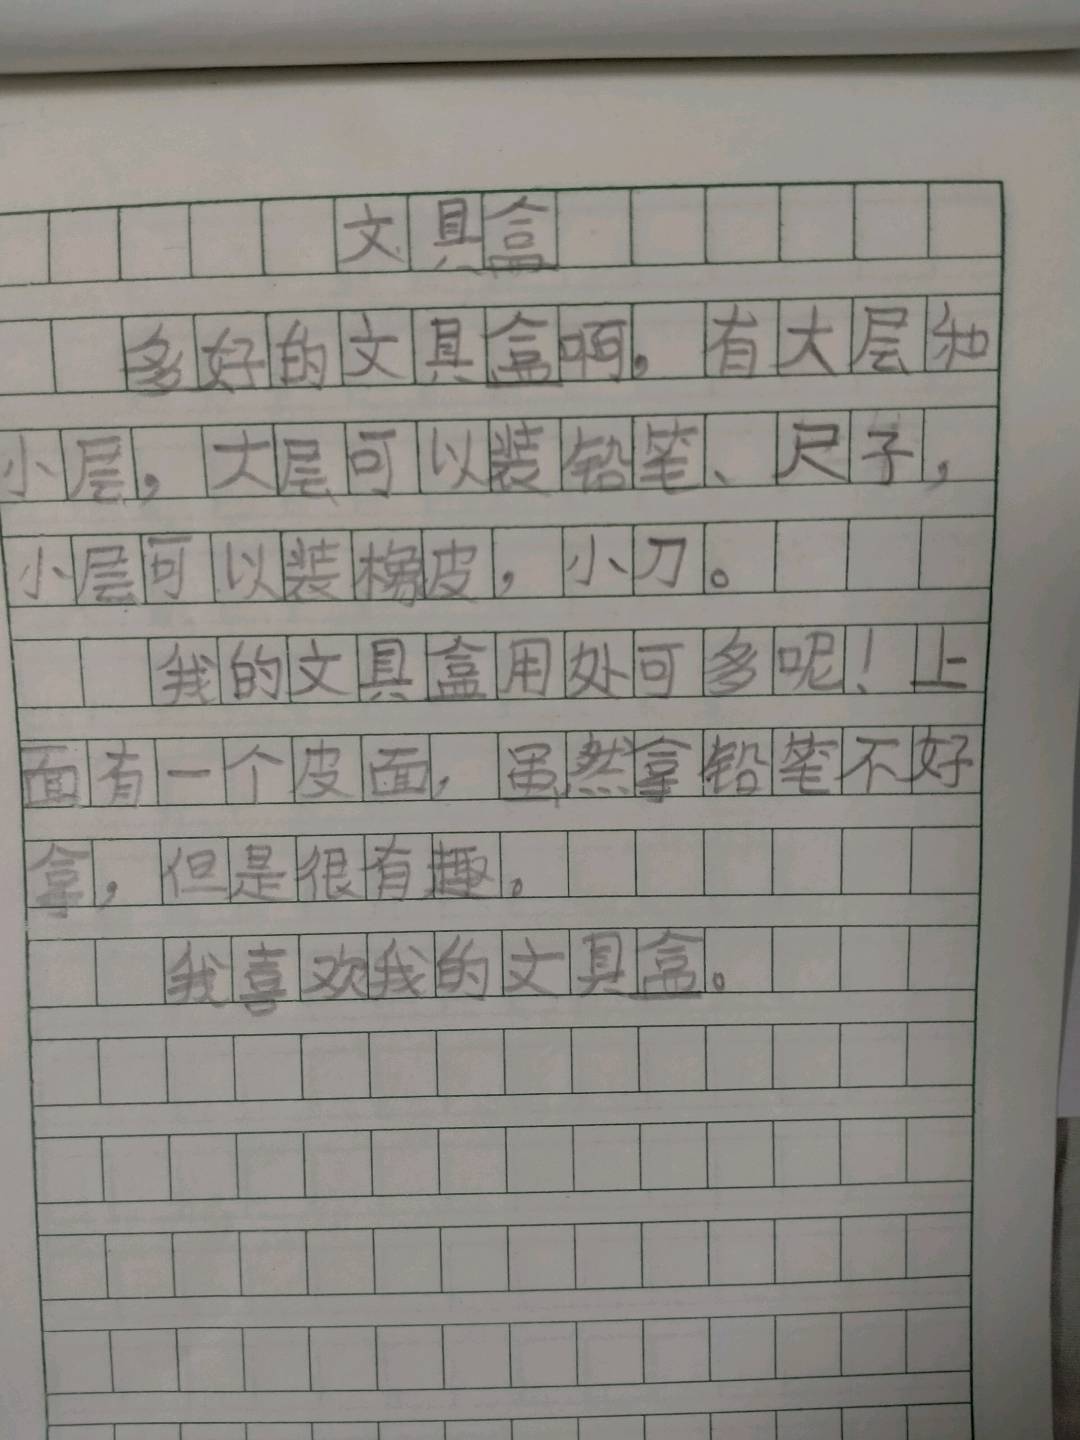 文具盒
多好的文具盒啊，有大层和
小层，大层可以装铅笔、尺子，
小层可以装橡皮，小刀。
我的文具盒用处可多呢！上
面有一个皮面，虽然拿铅笔不好
拿，但是很有趣。
我喜欢我的文具盒。